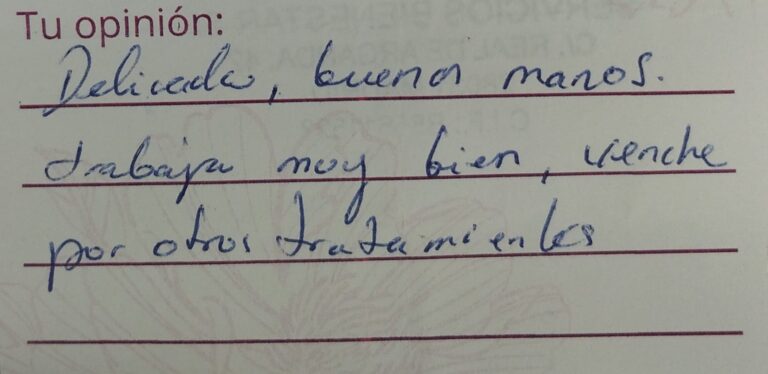 Tu opinión:
Delicada, buenas manos.
trabaja muy bien,
por otros tratamientos